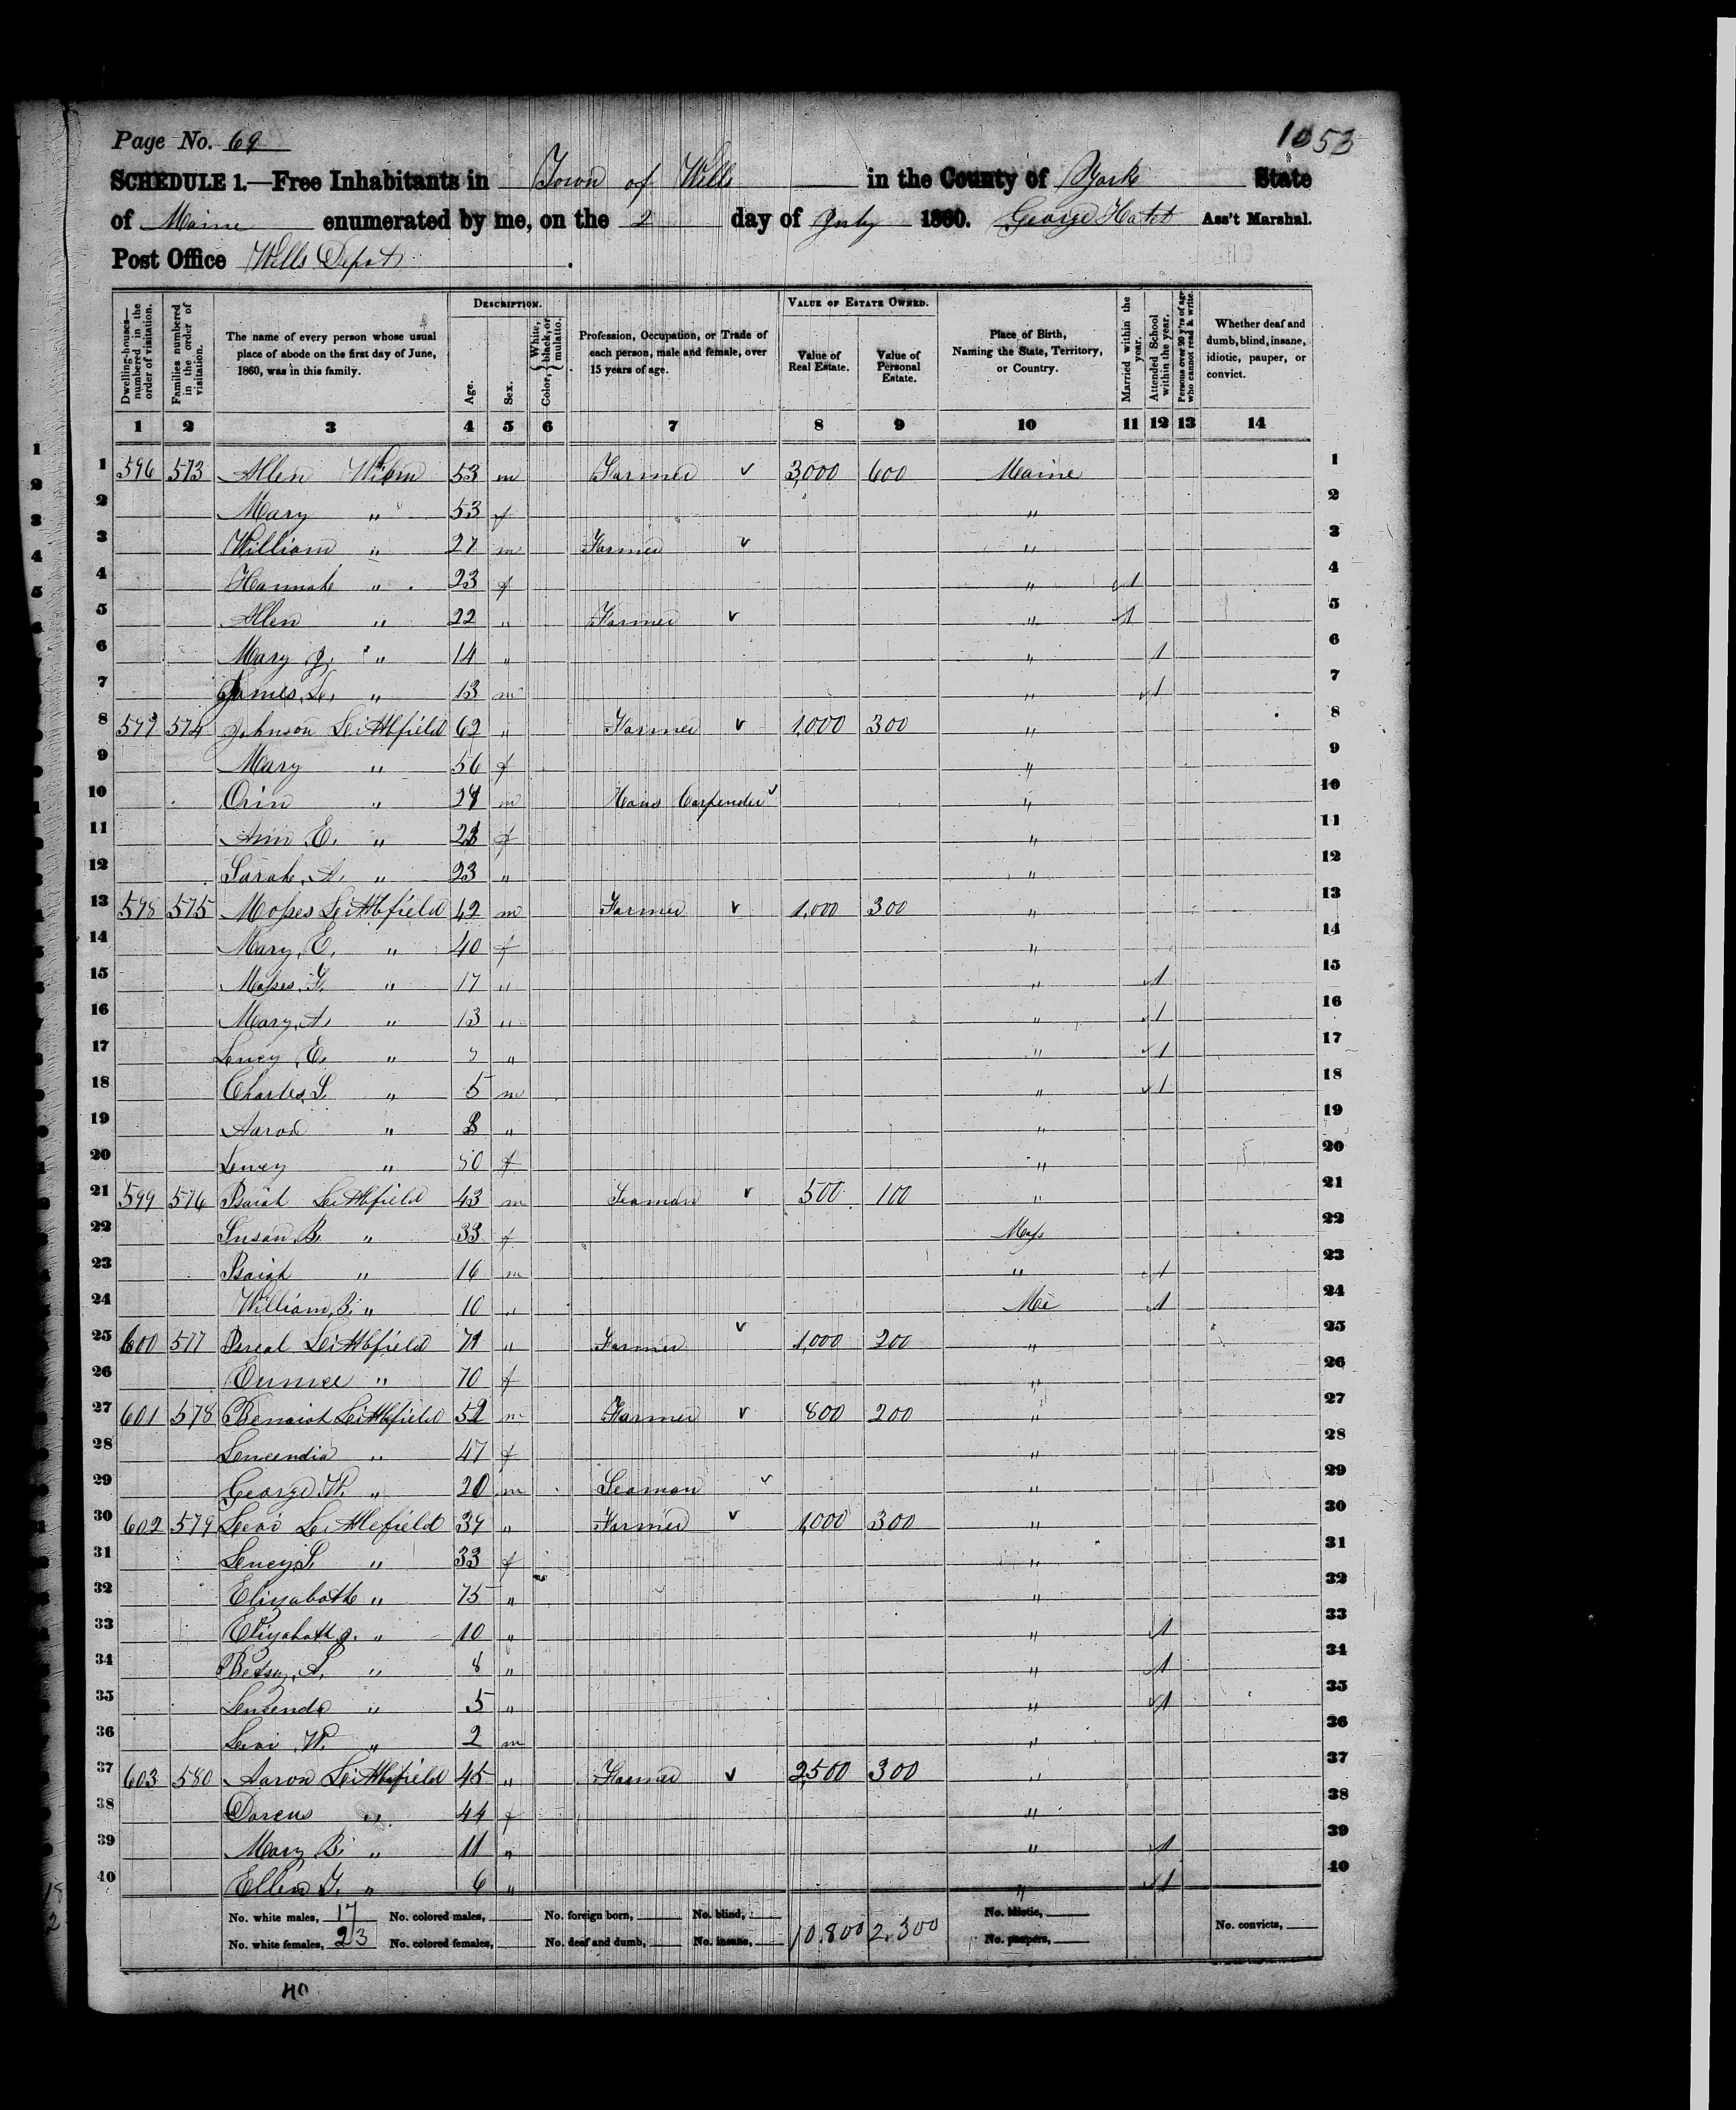 Page No. 69
1053
SCHEDULE 1.—Free Inhabitants in Town of Wells in the County of York State
of Maine enumerated by me, on the 2 day of July 1860. George Hatch Ass't Marshal.
Post Office Wells Depot.
Dwelling-houses—numbered in the order of visitation.
Families numbered in the order of visitation.
The name of every person whose usual place of abode on the first day of June, 1860, was in this family.
DESCRIPTION.
Age.
Sex.
Color, { White, black, or mulatto.
Profession, Occupation, or Trade of each person, male and female, over 15 years of age.
VALUE OF ESTATE OWNED.
Value of Real Estate.
Value of Personal Estate.
Place of Birth, Naming the State, Territory, or Country.
Married within the year.
Attended School within the year.
Persons over 20 y'rs of age who cannot read & write.
Whether deaf and dumb, blind, insane, idiotic, pauper, or convict.
1 2 3 4 5 6 7 8 9 10 11 12 13 14
1 596 573 Allen 53 m Farmer 3,000 600 Maine 1
2 Mary " 53 f " 2
3 William " 27 m Farmer " 3
4 Hannah " 23 f " 1 4
5 Allen " 22 " Farmer " 1 5
6 Mary J. " 14 " " 1 6
7 James L. " 13 m " 1 7
8 597 574 Johnson Littlefield 62 " Farmer 1,000 300 " 8
9 Mary " 56 f " 9
10 Orin " m Hous Carpender " 10
11 Ann E. " f " 11
12 Sarah A. " 23 " " 12
13 598 575 Moses Littlefield 42 m Farmer 1,000 300 " 13
14 Mary E. " 40 f " 14
15 Moses F. " 17 " " 1 15
16 Mary A. " 13 " " 1 16
17 Lucy E. " 7 " " 1 17
18 Charles S. " 5 m " 1 18
19 Aaron " " " 19
20 Lucy " 50 f " 20
21 599 576 Isaiah Littlefield 43 m Seaman 500 100 " 21
22 Susan B. " 33 f Mass 22
23 Isaiah " 16 m " 1 23
24 William B. " 10 " Me 1 24
25 600 577 Isreal Littlefield 71 " Farmer 1,000 200 " 25
26 Eunice " 70 f " 26
27 601 578 Benaiah Littlefield 52 m Farmer 800 200 " 27
28 Lucendia " 47 f " 28
29 George W. " 20 m Seaman " 29
30 602 579 Levi Littlefield 34 " Farmer 1,000 300 " 30
31 Lucy S. " 33 f " 31
32 Elizabeth " 75 " " 32
33 Elizabeth J. " 10 " " 1 33
34 Betsy A. " 8 " " 1 34
35 Lucenda " 5 " " 1 35
36 Levi W. " 2 m " 36
37 603 580 Aaron Littlefield 45 " Farmer 2,500 300 " 37
38 Dorcus " 44 f " 38
39 Mary B. " 11 " " 1 39
40 Ellen F. " 6 " " 1 40
No. white males, 17 No. colored males, No. foreign born, No. blind, 10,800 2,300 No. idiotic, No. convicts,
No. white females, 23 No. colored females, No. deaf and dumb, No. insane, No. paupers,
40